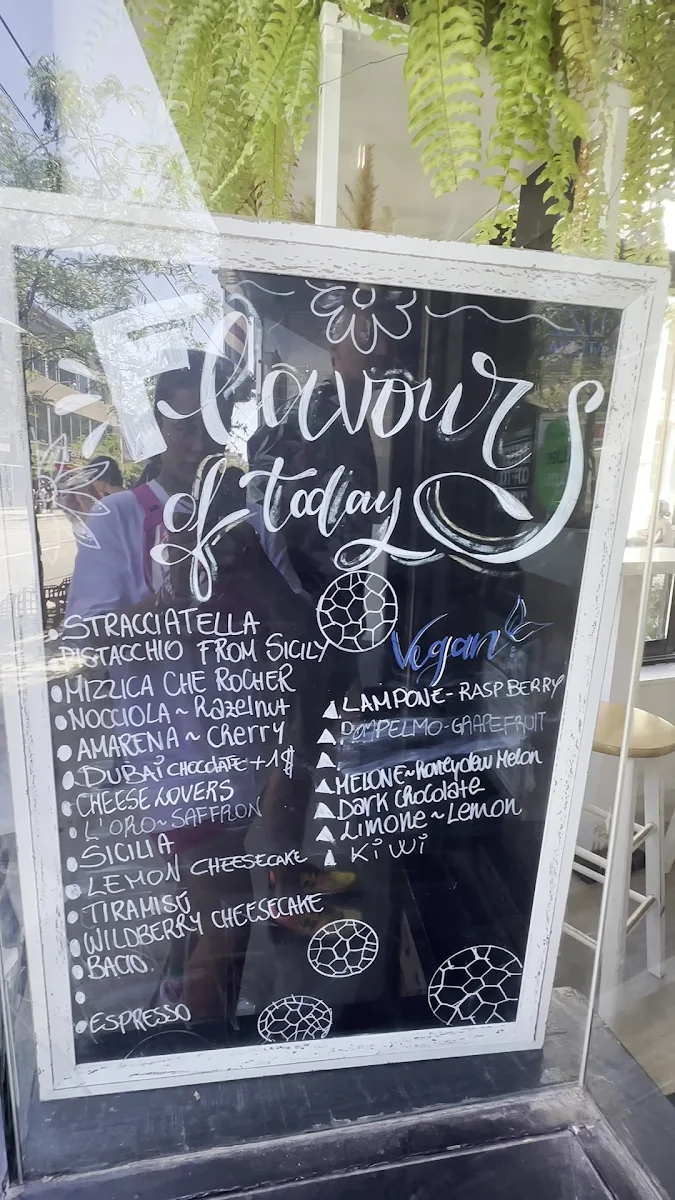 Flavours
of today
STRACCIATELLA
PISTACCHIO FROM SICILY
MIZZICA CHE ROCHER
NOCCIOLA ~ Hazelnut
AMARENA ~ Cherry
DUBAI CHOCOLATE +1$
CHEESE LOVERS
L'ORO ~ SAFFRON
SICILIA
LEMON CHEESECAKE
TIRAMISÙ
WILDBERRY CHEESECAKE
BACIO.
ESPRESSO
Vegan
LAMPONE - RASPBERRY
POMPELMO - GRAPEFRUIT
MELONE ~ Honeydew Melon
Dark Chocolate
Limone ~ Lemon
Kiwi